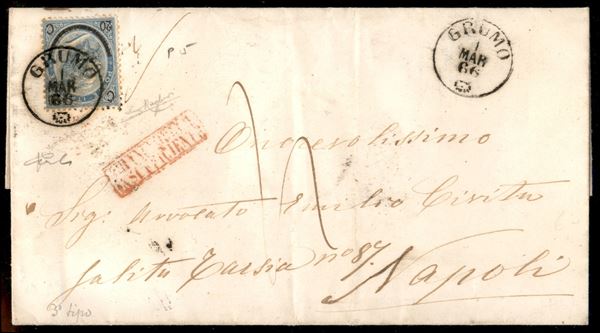 C 20
20 C
GRUMO
1
MAR
66
P. 5
GRUMO
1
MAR
66
INSUFFICIENTE
Onorevolissimo
Sig: Avvocato Emilio Civita
Salita Tarsia nº 87.
Napoli
3º tipo